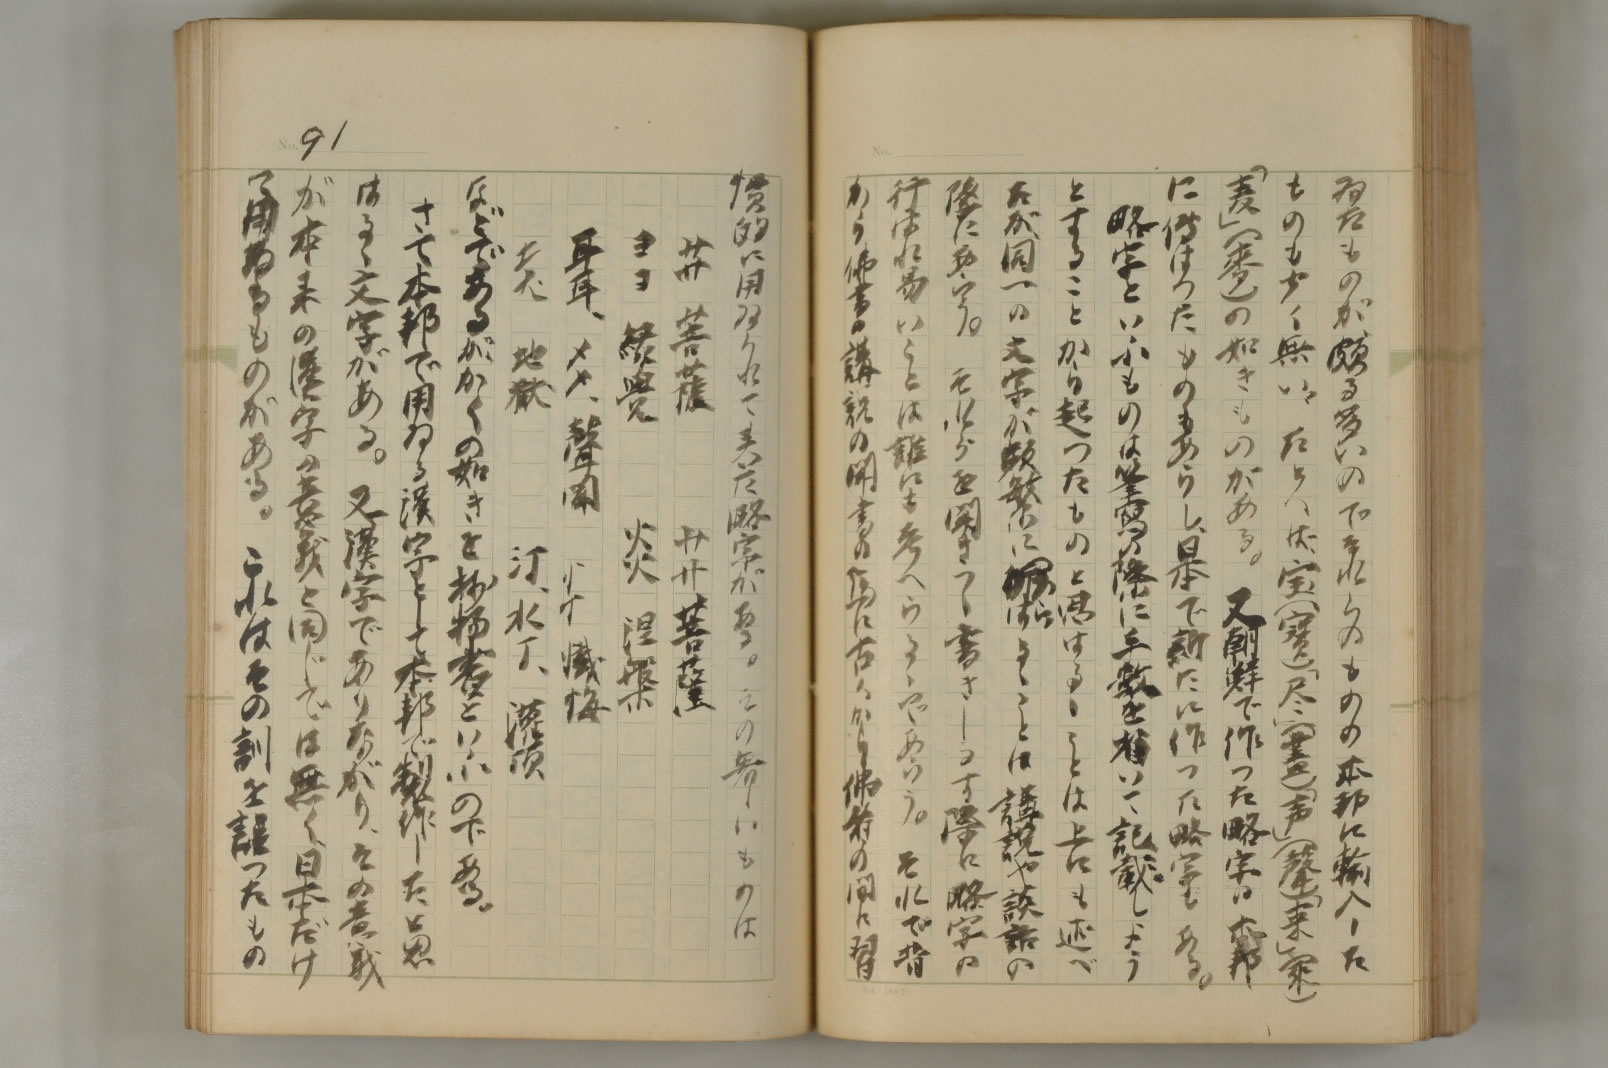 ものも少く無い。たとへば、宝(寶)「尽」(盡)「声」(聲)「来」(來)
「麦」(麥)の如きものがある。又朝鮮で作つた略字が本邦
に傳はつたものもあらうし、日本で新たに作つた略字もある。
略字といふものは筆寫の際に手數を省いて記載しよう
とすることから起つたものと思はるゝことは上にも述べ
たが同一の文字が頻繁に
はるゝことは講説や談話の
際に多い。それらを聞きつゝ書きしるす際に略字の
行はれ易いことは誰にも考へらるゝであらう。それで昔
から佛書の講説の聞書の
に古くから佛者の間に習
No. 91
慣的に用ゐられて來た略字がある。その著しいものは
菩薩 菩薩
ヨヨ 緣覺 炎 涅槃
耳耳、メメ、聲聞 忄忄 懺悔
地獄 汀、水丁、灌頂
などであるがかくの如きを抄物書といふのである。
さて本邦で用ゐる漢字として本邦で製作したと思
はるゝ文字がある。又漢字でありながら、その意義
が本來の漢字の意義と同じでは無く、日本だけ
で用ゐるものがある。これはその訓を誤つたもの